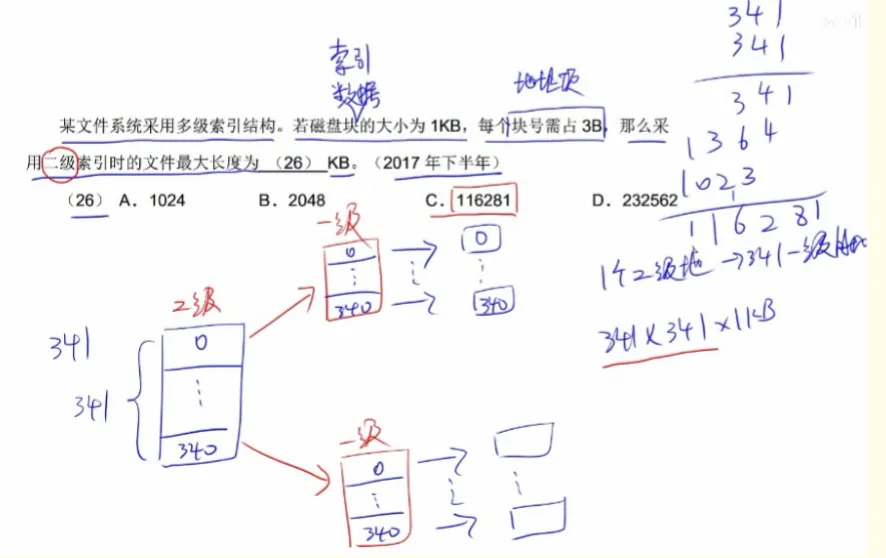 索引
数据
地址项
某文件系统采用多级索引结构。若磁盘块的大小为 1KB，每个块号需占 3B，那么采
用二级索引时的文件最大长度为 （26） KB。（2017 年下半年）
（26） A．1024 B．2048 C．116281 D．232562
341
341
341
1364
1023
1
116281
1个2级地 →341一级
341×341×1KB
2级
341
341
0
⋮
340
一级
0
⋮
340
0
⋮
340
一级
0
⋮
340